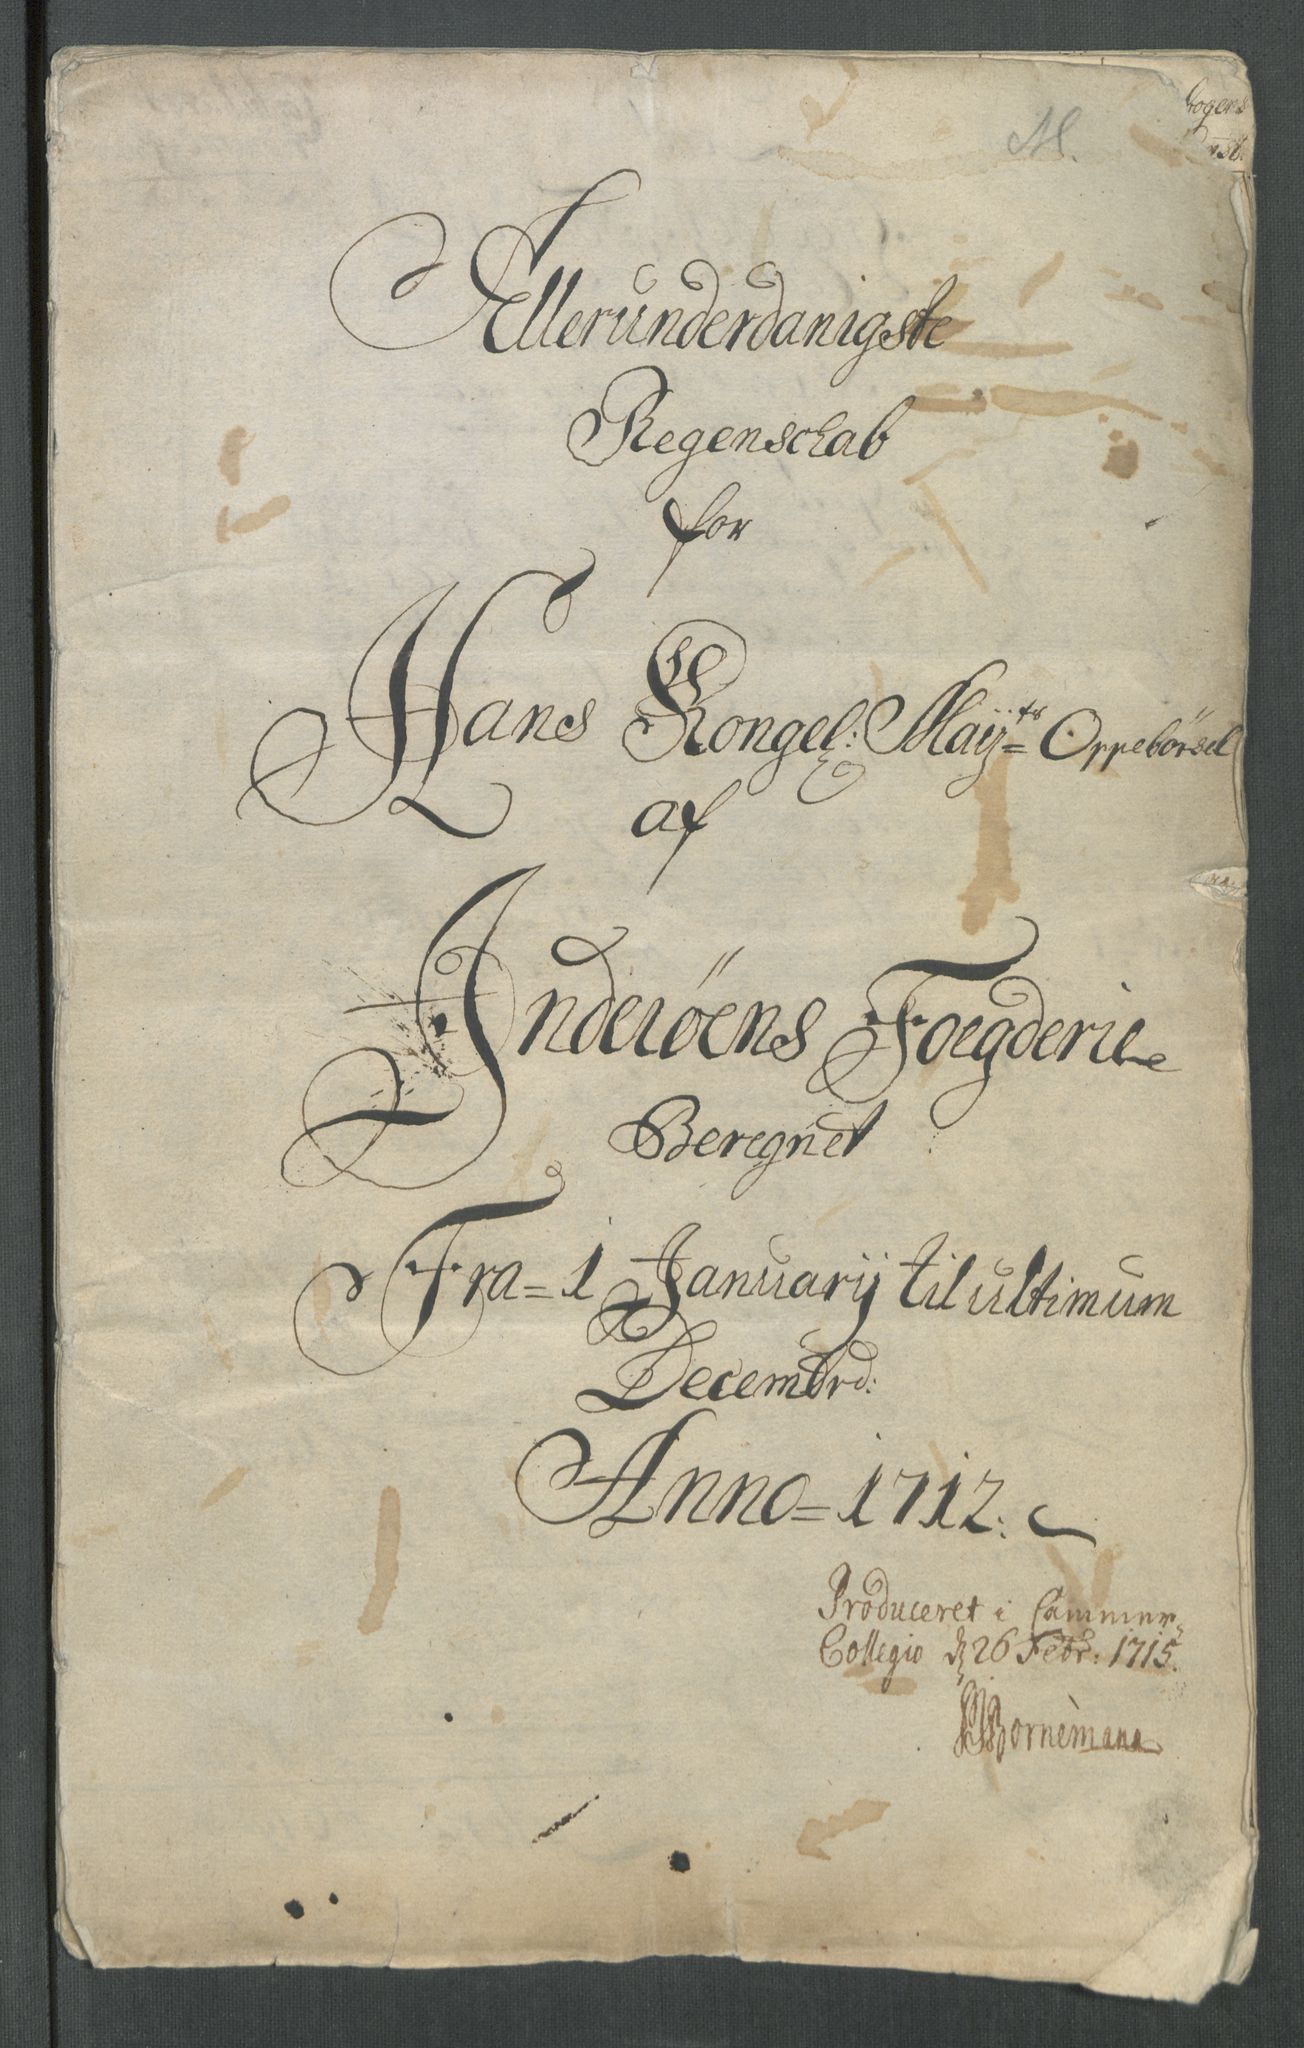 M.
Allerunderdanigste
Regenschab
for
Hans Kongel: Maÿ=ts Oppebörsel
af
Inderöens Foegderie
Beregnet
Fra=1 Januarÿ til ultimum
Decembrd:
Anno=1712:
Produceret i Cammer=
Collegio d 26 Febr: 1715.
Bornemann